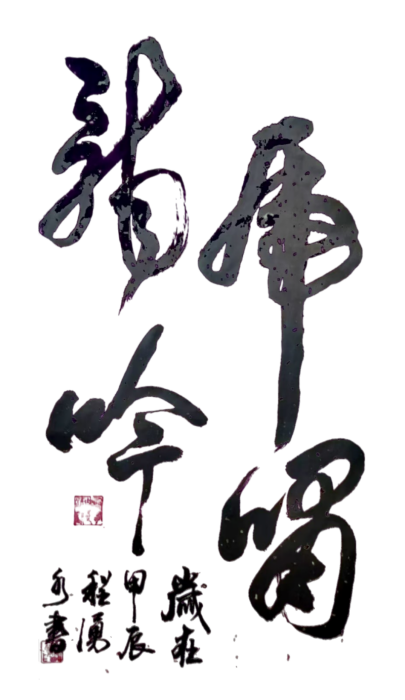 虎啸
龍吟
歲在
甲辰
程湧
水書